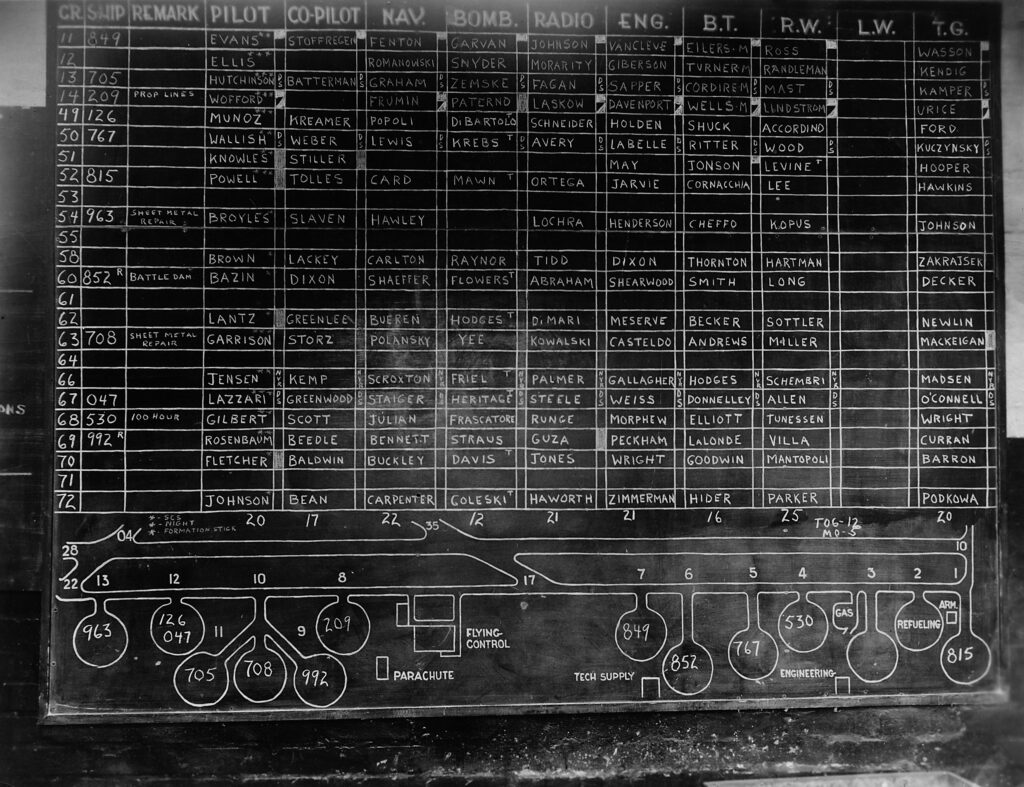 CR SHIP REMARK PILOT CO-PILOT NAV. BOMB. RADIO ENG. B.T. R.W. L.W. T.G.
11 849 EVANS** STOFFREGEN FENTON GARVAN JOHNSON VANCLEVE EILERS-M ROSS WASSON
12 ELLIS*** ROMANOWSKI SNYDER MORARITY GIBERSON TURNER-M RANDLEMAN KENDIG
13 705 HUTCHINSON BATTERMAN GRAHAM ZEMSKE FAGAN SAPPER CORDIREM MAST KAMPER
14 209 PROP LINES WOFFORD** FRUMIN PATERNO LASKOW DAVENPORT WELLS-M LINDSTROM URICE
49 126 MUNOZ* KREAMER POPOLI DIBARTOLO SCHNEIDER HOLDEN SHUCK ACCORDINO FORD
50 767 WALLISH* DS WEBER DS LEWIS DS KREBS T DS AVERY DS LABELLE DS RITTER DS WOOD DS KUCZYNSKY DS
51 KNOWLES** STILLER MAY JONSON LEVINE T HOOPER
52 815 POWELL** TOLLES CARD MAWN T ORTEGA JARVIE CORNACCHIA LEE HAWKINS
53
54 963 SHEET METAL REPAIR BROYLES* SLAVEN HAWLEY LOCHRA HENDERSON CHEFFO KOPUS JOHNSON
55
58 BROWN* LACKEY CARLTON RAYNOR TIDD DIXON THORNTON HARTMAN ZAKRAJSEK
60 852 R BATTLE DAM BAZIN* DIXON SHAEFFER FLOWERS T ABRAHAM SHEARWOOD SMITH LONG DECKER
61
62 LANTZ* GREENLEE BUEREN HODGES T DIMARI MESERVE BECKER SOTTLER NEWLIN
63 708 SHEET METAL REPAIR GARRISON STORZ POLANSKY YEE KOWALSKI CASTELDO ANDREWS MILLER MACKEIGAN
64
66 JENSEN** KEMP SCROXTON FRIEL T PALMER GALLAGHER HODGES SCHEMBRI MADSEN
67 047 LAZZARI* GREENWOOD STAIGER HERITAGE T STEELE WEISS DONNELLEY ALLEN O'CONNELL
68 530 100 HOUR GILBERT* SCOTT JULIAN FRASCATORE RUNGE MORPHEW ELLIOTT TUNESSEN WRIGHT
69 992 R ROSENBAUM** BEEDLE BENNETT STRAUS GUZA PECKHAM LALONDE VILLA CURRAN
70 FLETCHER* BALDWIN BUCKLEY DAVIS T JONES WRIGHT GOODWIN MANTOPOLI BARRON
71
72 JOHNSON BEAN CARPENTER COLESKI T HAWORTH ZIMMERMAN HIDER PARKER PODKOWA
20 17 22 12 21 21 16 25 20
*-SCS
*-NIGHT
*-FORMATION STICK
TOG-12
MO-5
04 35
28 10
22 13 12 10 8 17 7 6 5 4 3 2 1
963 126 047 11 9 209 FLYING CONTROL 849 530 GAS REFUELING ARM.
705 708 992 PARACHUTE TECH SUPPLY 852 767 ENGINEERING 815
ONS